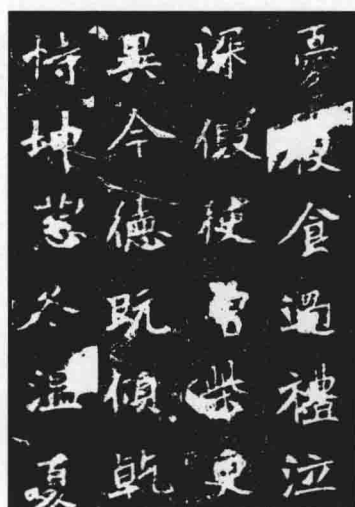 憂食過禮泣
深假使曾柴更
異今德既傾乾
恃坤慈冬溫夏